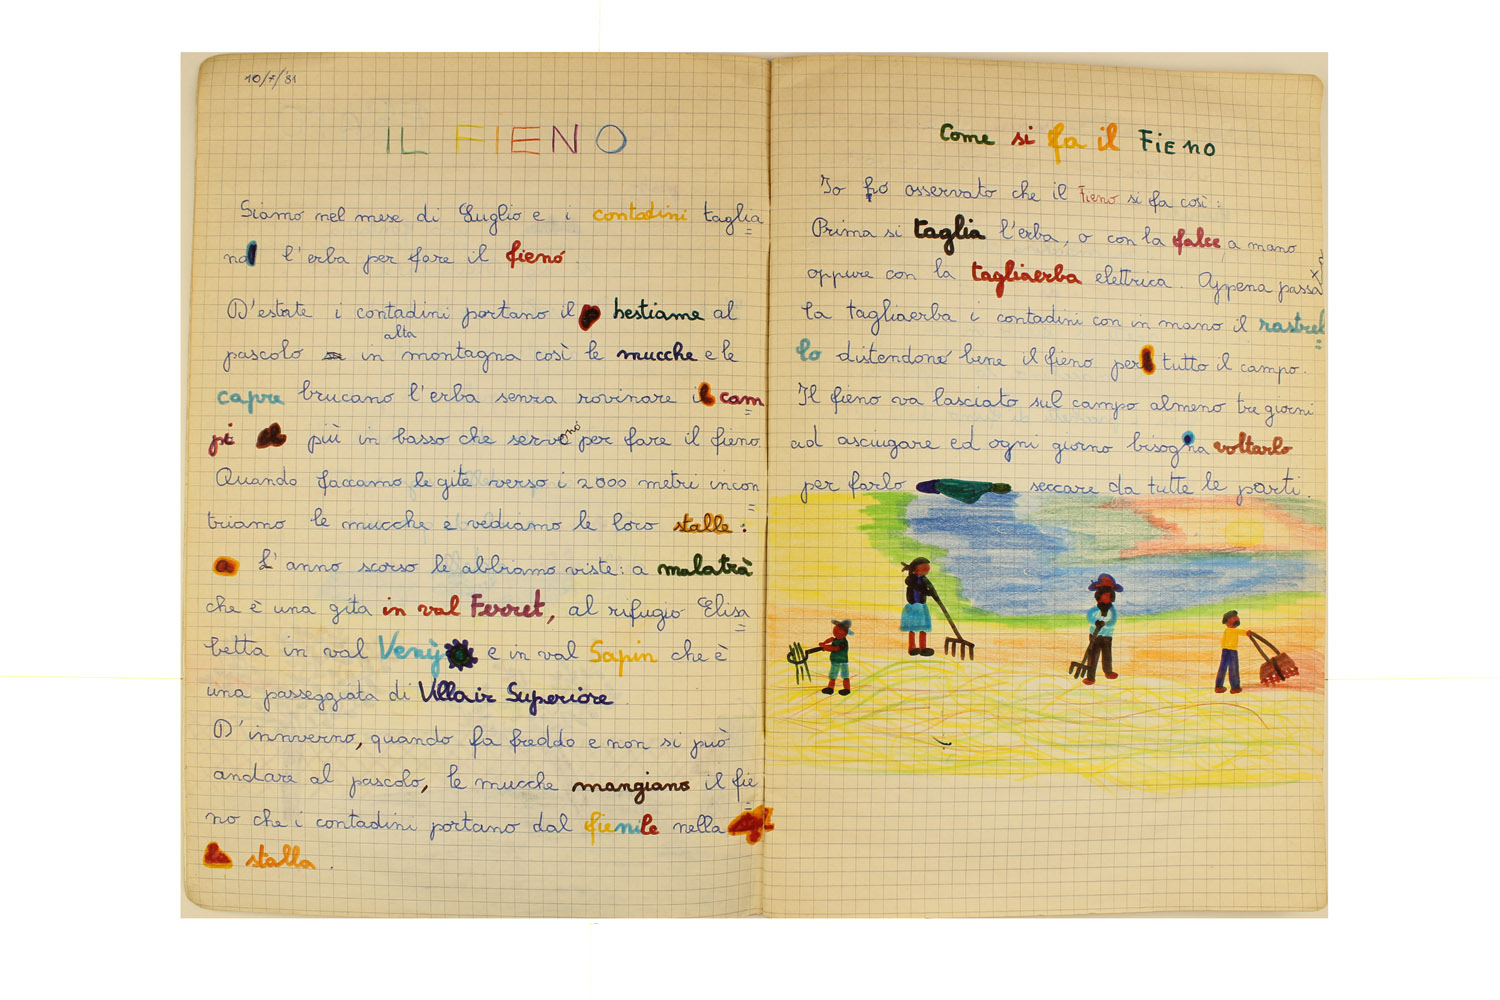 10/7/'81
IL FIENO
Siamo nel mese di Luglio e i contadini taglia
no l'erba per fare il fieno.
D'estate i contadini portano il bestiame al
pascolo in alta montagna così le mucche e le
capre brucano l'erba senza rovinare i cam
pi più in basso che servono per fare il fieno.
Quando facciamo le gite verso i 2000 metri incon
triamo le mucche e vediamo le loro stalle:
L'anno scorso le abbiamo viste: a malatrà
che è una gita in val Ferret, al rifugio Elisa
betta in val Venÿ e in val Sapin che è
una passeggiata di Villair Superiore.
D'innverno, quando fa freddo e non si può
andare al pascolo, le mucche mangiano il fie
no che i contadini portano dal fienile nella
stalla.
Come si fa il Fieno
Io ho osservato che il Fieno si fa così:
Prima si taglia l'erba, o con la falce a mano
oppure con la tagliaerba elettrica. Appena passa
la tagliaerba i contadini con in mano il rastrel
lo distendono bene il fieno per tutto il campo.
Il fieno va lasciato sul campo almeno tre giorni
ad asciugare ed ogni giorno bisogna voltarlo
per farlo seccare da tutte le parti.